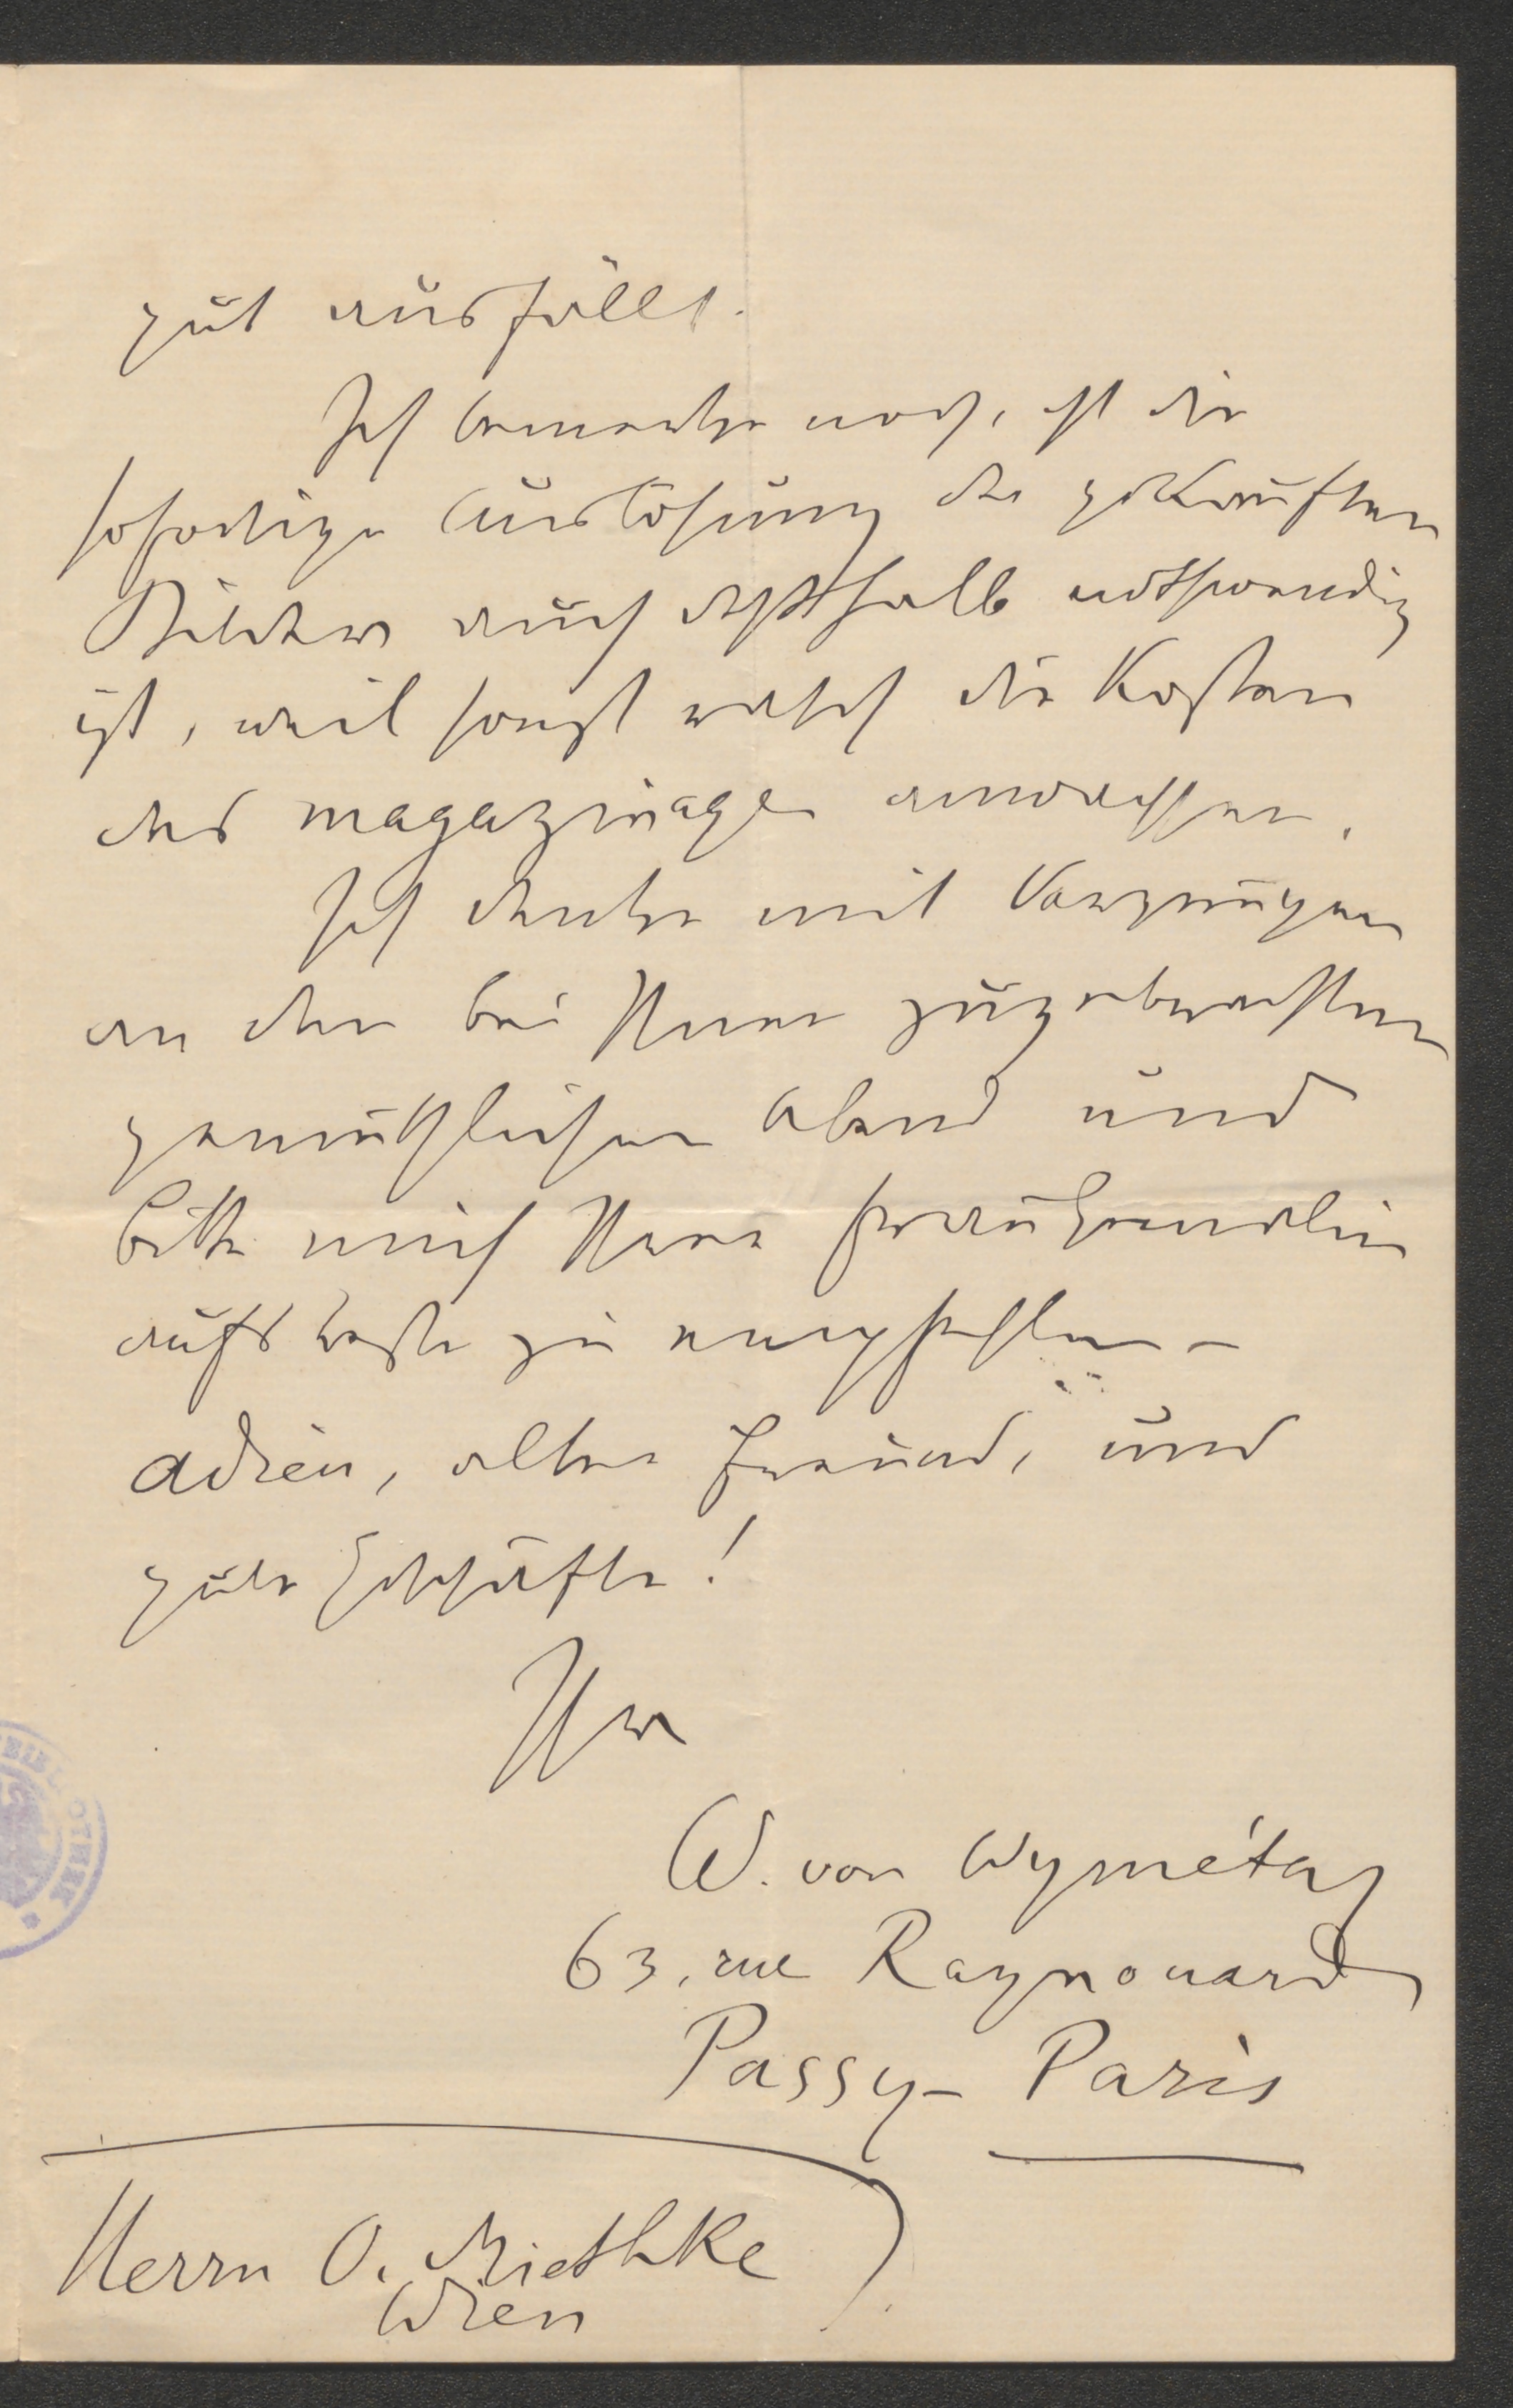 gut ausfällt.
Ich bemerke noch, ist die
sofortige Auslösung der gekauften
Bilder auch deßhalb nothwendig
ist, weil sonst rasch die Kosten
des magazinage anwachsen.
Ich denke mit Vergnügen
an den bei Ihnen zugebrachten
gemüthlichen Abend und
bitte mich Ihrer Frau Gemalin
aufs beste zu empfehlen –
Adieu, alter Freund, und
gute Geschäfte!
Ihr
W. von Wymétal
63, rue Raynouard
Passy – Paris
Herrn O. Miethke
Wien
BIBLIOTHEK